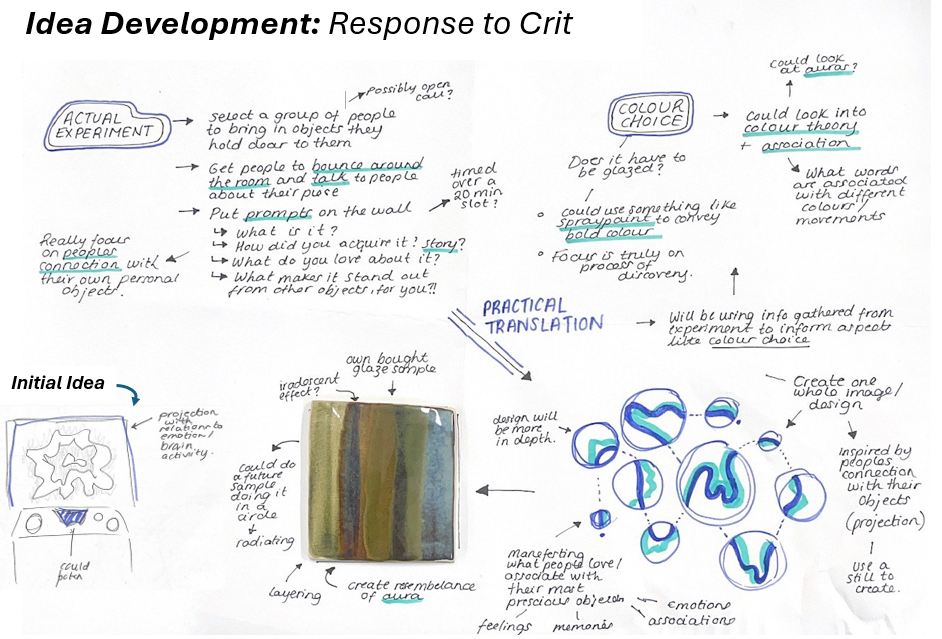 Idea Development: Response to Crit
ACTUAL
EXPERIMENT
select a group of people
to bring in objects they
hold dear to them
Possibly open
call?
Get people to bounce around
the room and talk to people
about their piece
timed
over a
20 min
slot?
Put prompts on the wall
What is it?
How did you acquire it? story?
What do you love about it?
What makes it stand out
from other objects, for you?!
Really focus
on peoples
connection with
their own personal
objects.
COLOUR
CHOICE
Could look into
colour theory
+ association
could look
at auras?
What words
are associated
with different
colours/
movements
Does it have to
be glazed?
could use something like
spraypaint to convey
bold colour
Focus is truly on
process of
discovery.
Will be using info gathered from
experiment to inform aspects
like colour choice
PRACTICAL
TRANSLATION
Initial Idea
projection
with
relations to
emotion/
brain
activity.
could
own bought
glaze sample
iradescent
effect?
Could do
a future
sample
doing it
in a
circle
radiating
layering
create resembelance
of aura
design will
be more
in depth.
Create one
whole image/
design
Inspired by
peoples
connection
with their
Objects
(projection)
use a
still to
create.
manefesting
what people love/
associate with
their most
prescious objects
feelings
memories
emotions
associations